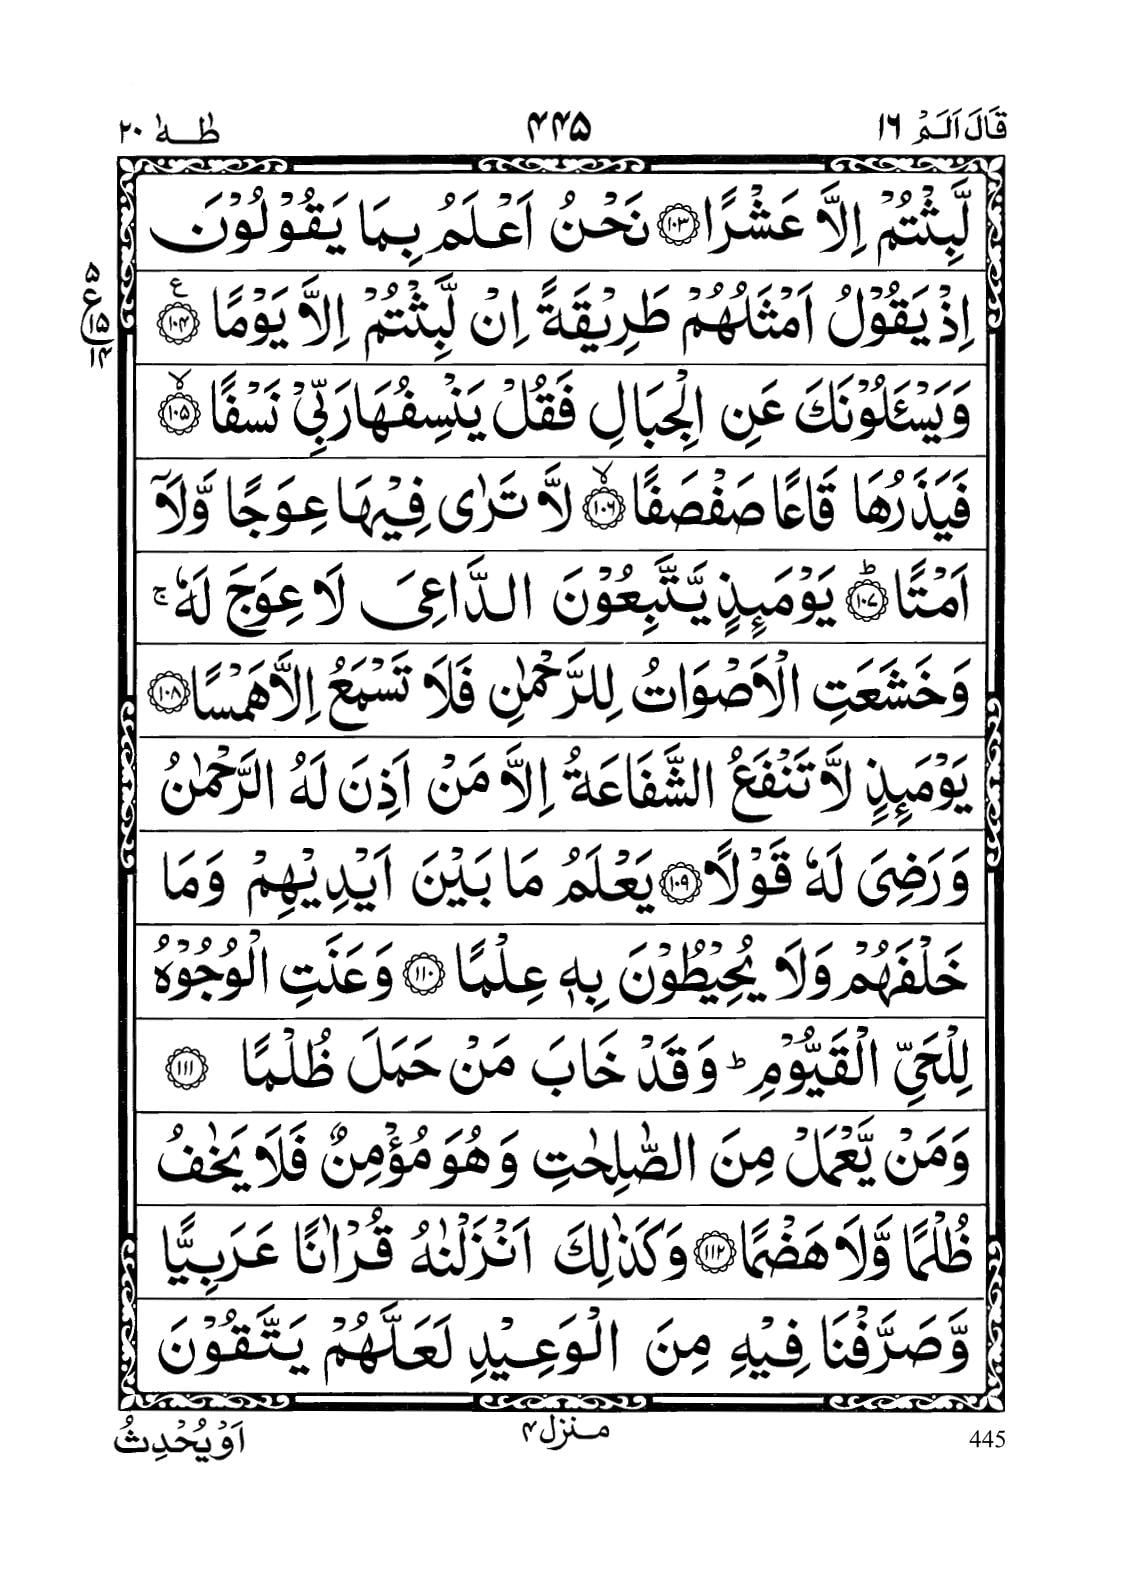 قَالَ اَلَمْ ۱۶ ۴۴۵ طٰهٰ ۲۰
لَّبِثْتُمْ اِلَّا عَشْرًا ﴿۱۰۳﴾ نَحْنُ اَعْلَمُ بِمَا يَقُوْلُوْنَ
اِذْ يَقُوْلُ اَمْثَلُهُمْ طَرِيْقَةً اِنْ لَّبِثْتُمْ اِلَّا يَوْمًا ﴿۱۰۴﴾ ع
۵ ع ۱۵ ۱۴
وَيَسْـَٔلُوْنَكَ عَنِ الْجِبَالِ فَقُلْ يَنْسِفُهَا رَبِّيْ نَسْفًا ﴿۱۰۵﴾ۙ
فَيَذَرُهَا قَاعًا صَفْصَفًا ﴿۱۰۶﴾ۙ لَّا تَرٰى فِيْهَا عِوَجًا وَّلَآ
اَمْتًا ﴿۱۰۷﴾ؕ يَوْمَىِٕذٍ يَّتَّبِعُوْنَ الدَّاعِيَ لَا عِوَجَ لَهٗ ۚ
وَخَشَعَتِ الْاَصْوَاتُ لِلرَّحْمٰنِ فَلَا تَسْمَعُ اِلَّا هَمْسًا ﴿۱۰۸﴾
يَوْمَىِٕذٍ لَّا تَنْفَعُ الشَّفَاعَةُ اِلَّا مَنْ اَذِنَ لَهُ الرَّحْمٰنُ
وَرَضِيَ لَهٗ قَوْلًا ﴿۱۰۹﴾ يَعْلَمُ مَا بَيْنَ اَيْدِيْهِمْ وَمَا
خَلْفَهُمْ وَلَا يُحِيْطُوْنَ بِهٖ عِلْمًا ﴿۱۱۰﴾ وَعَنَتِ الْوُجُوْهُ
لِلْحَيِّ الْقَيُّوْمِ ؕ وَقَدْ خَابَ مَنْ حَمَلَ ظُلْمًا ﴿۱۱۱﴾
وَمَنْ يَّعْمَلْ مِنَ الصّٰلِحٰتِ وَهُوَ مُؤْمِنٌ فَلَا يَخٰفُ
ظُلْمًا وَّلَا هَضْمًا ﴿۱۱۲﴾ وَكَذٰلِكَ اَنْزَلْنٰهُ قُرْاٰنًا عَرَبِيًّا
وَّصَرَّفْنَا فِيْهِ مِنَ الْوَعِيْدِ لَعَلَّهُمْ يَتَّقُوْنَ
445 منزل ۴ اَوْ يُحْدِثُ